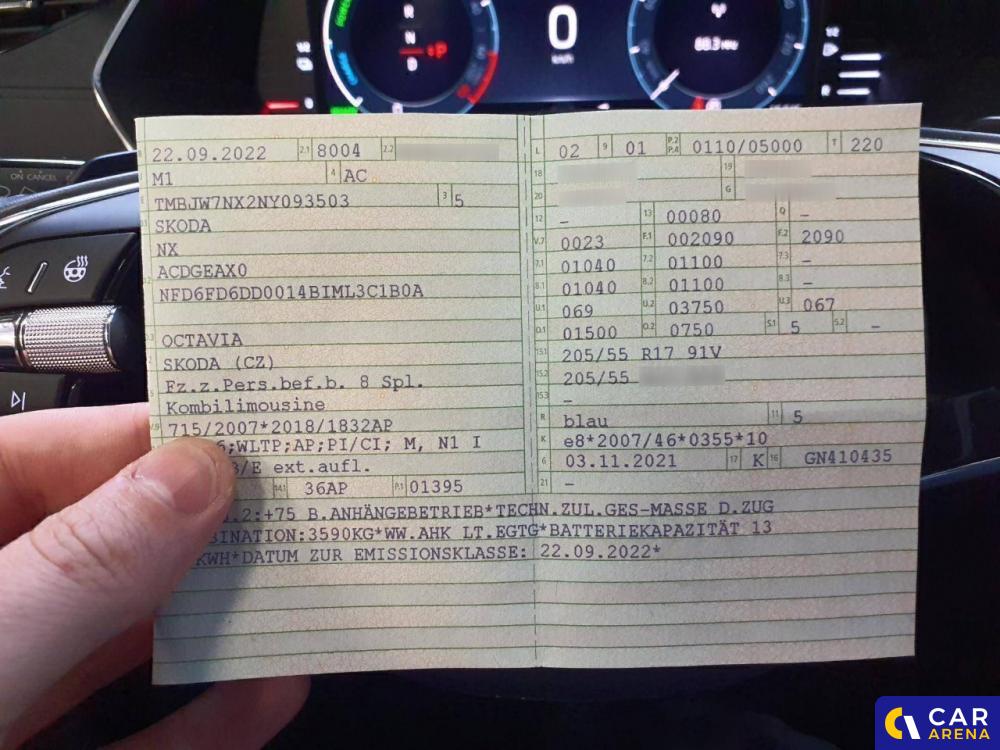 R
N
D
P
0
km/h
ON CANCEL
22.09.2022 2.1 8004 2.2
M1 4 AC
TMBJW7NX2NY093503 3 5
SKODA
NX
ACDGEAX0
NFD6FD6DD0014BIML3C1B0A
OCTAVIA
SKODA (CZ)
Fz.z.Pers.bef.b. 8 Spl.
Kombilimousine
715/2007*2018/1832AP
6;WLTP;AP;PI/CI; M, N1 I
/E ext.aufl.
14.1 36AP P.1 01395
L 02 9 01 P.2 P.4 0110/05000 T 220
18 19
20 G
12 – 13 00080 Q –
V.7 0023 F.1 002090 F.2 2090
7.1 01040 7.2 01100 7.3 –
8.1 01040 8.2 01100 8.3 –
U.1 069 U.2 03750 U.3 067
O.1 01500 O.2 0750 S.1 5 S.2 –
15.1 205/55 R17 91V
15.2 205/55
15.3 –
R blau 11 5
K e8*2007/46*0355*10
6 03.11.2021 17 K 16 GN410435
21 –
.2:+75 B.ANHÄNGEBETRIEB*TECHN.ZUL.GES-MASSE D.ZUG
BINATION:3590KG*WW.AHK LT.EGTG*BATTERIEKAPAZITÄT 13
KWH*DATUM ZUR EMISSIONSKLASSE: 22.09.2022*
CAR
ARENA